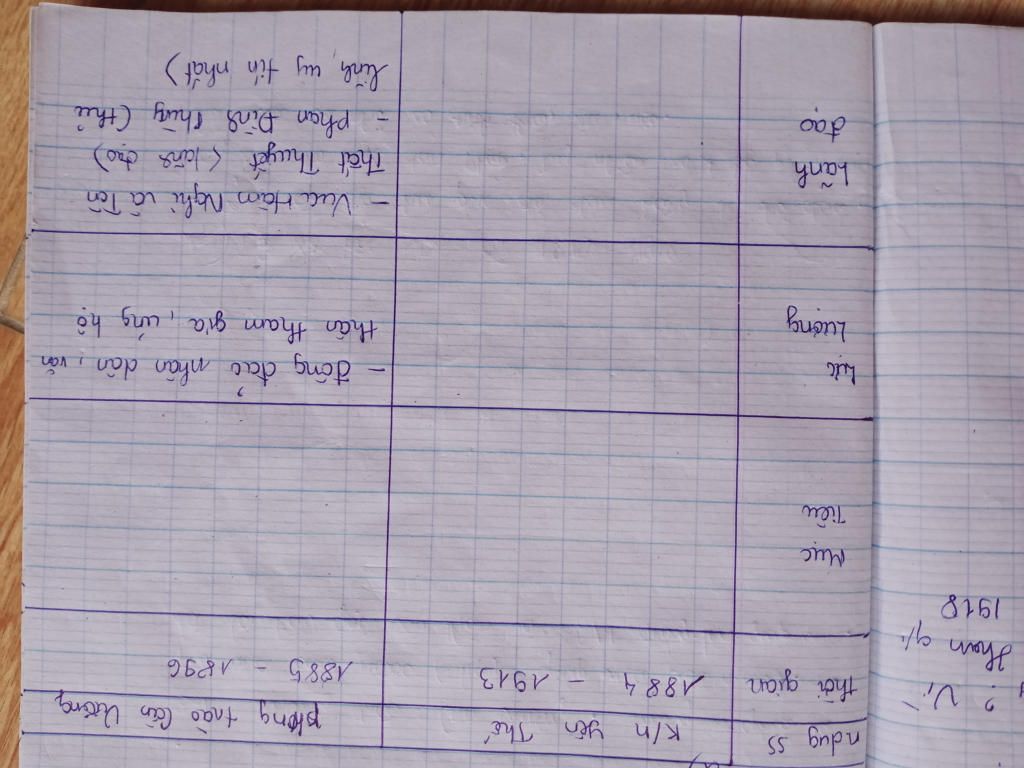 ndug ss
K/n Yên Thế
phong trào Cần Vương
thời gian
1884 - 1913
1885 - 1896
Mục
Tiêu
Lực
Lượng
- đông đảo nhân dân, văn
thân tham gia, ủng hộ
Lãnh
đạo
- Vua Hàm Nghi và Tôn
Thất Thuyết (lãnh đạo)
- Phan Đình Phùng (thủ
lĩnh uy tín nhất)
? Vì
tham gi
1918